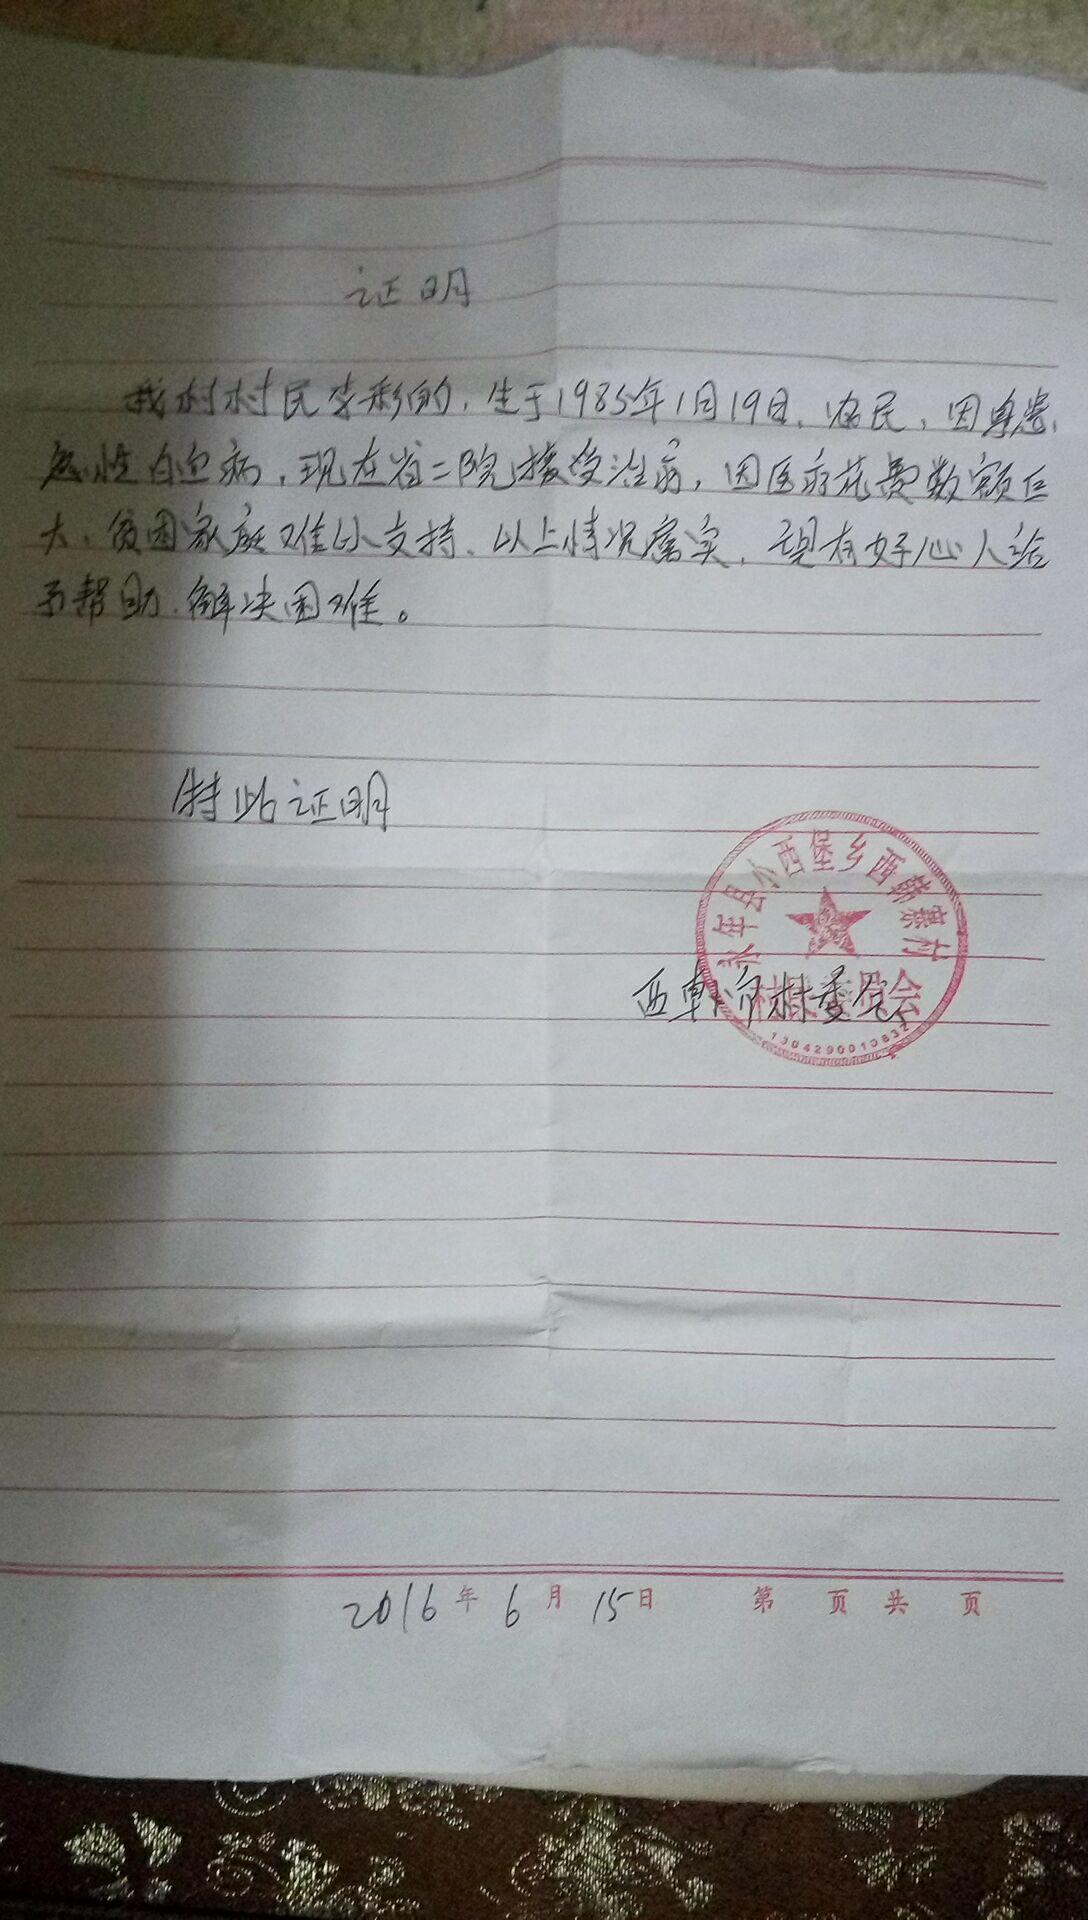 证明
我村村民李彩的，生于1985年1月19日，农民，因身患
急性白血病，现在省二院接受治病，因医疗花费数额巨
大，贫困家庭难以支持，以上情况属实，望有好心人给
予帮助，解决困难。
特此证明
永年县小西堡乡西韩寨村
村民委员会
1304290010832
西韩寨村委会
2016年6月15日 第 页共 页